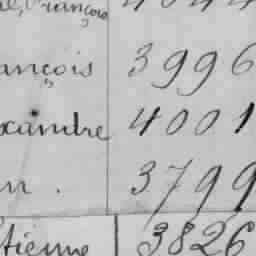 François
ançois 3996
xandre 4001
n. 3799
tienne 3826